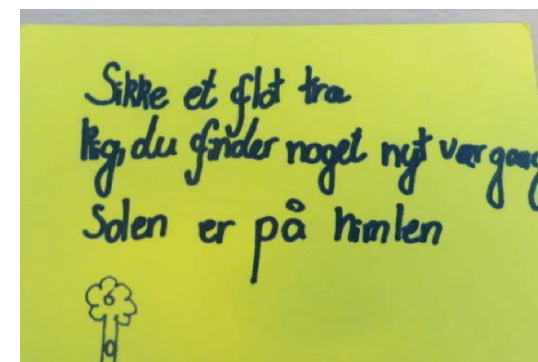 Sikke et flot træ
Kig, du finder noget nyt vær gang
Solen er på himlen
6